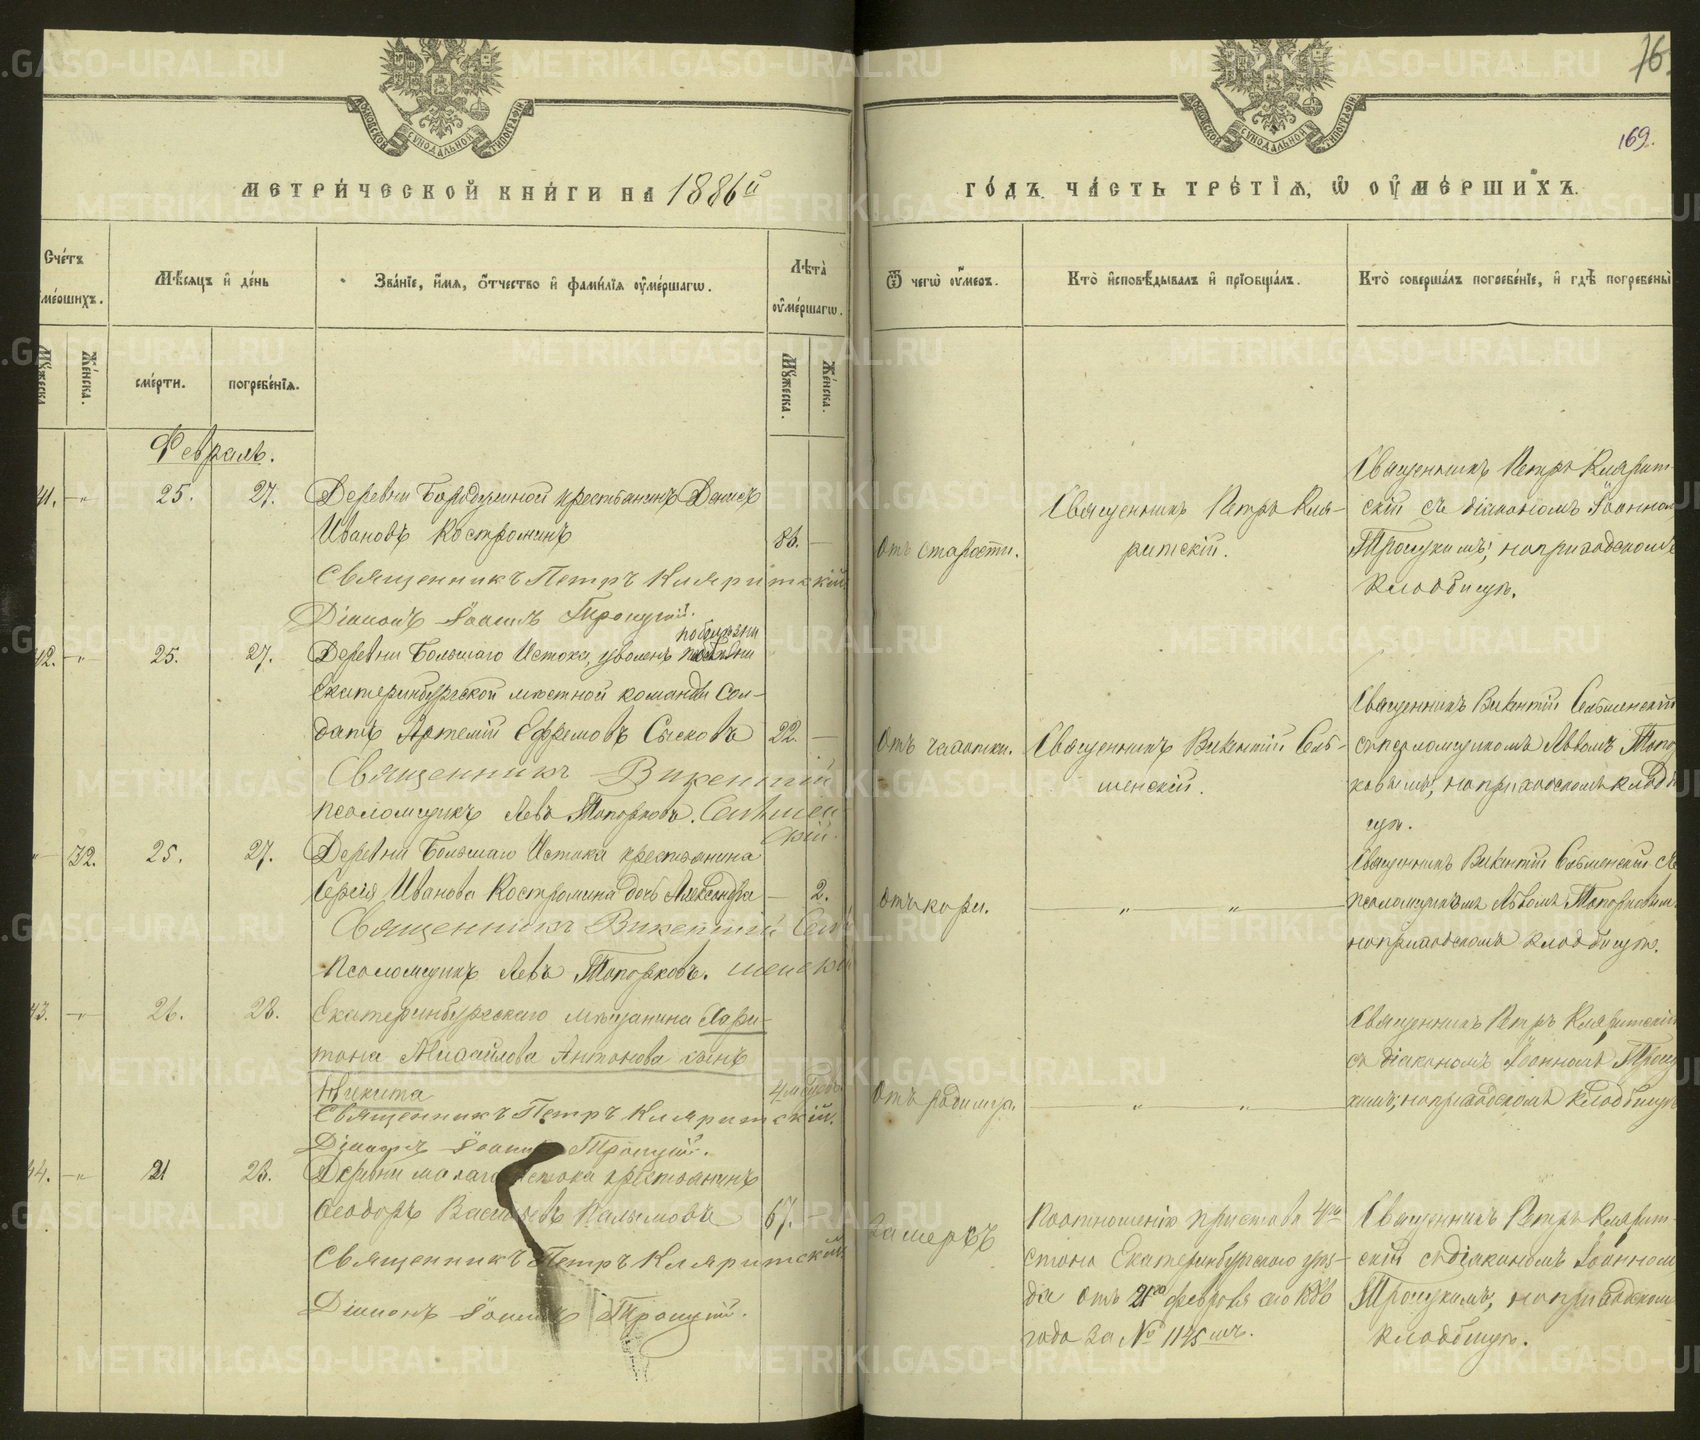 76.
169.
МОСКОВСКОЙ СУНОДАЛЬНОЙ ТИПОГРАФІИ
МОСКОВСКОЙ СУНОДАЛЬНОЙ ТИПОГРАФІИ
МЕТРИ́ЧЕСКОЙ КНИ́ГИ НА 1886й
ГО́ДЪ. ЧА́СТЬ ТРЕ́ТІЯ, Ѽ ОУ҆МЕ́РШИХЪ.
Сче́тъ
ме́ршихъ.
Мѣ́сяцъ и҆ де́нь
Зва́нїе, и҆́мя, ѻ҆́тчество и҆ фами́лїя оу҆ме́ршагѡ.
Лѣта̀
оу҆ме́ршагѡ.
Ѿ чегѡ̀ оу҆́меръ.
Кто̀ и҆сповѣ́дывалъ и҆ прїѻбща́лъ.
Кто̀ соверша́лъ погребе́нїе, и҆ гдѣ̀ погребены̀
Му́жеска
Же́нска.
сме́рти.
погребе́нїя.
Му́жеска.
Же́нска.
Февраль.
41. — „ 25. 27. Деревни Бородулиной крестьянинъ Денисъ
Ивановъ Костроминъ 86. —
Священникъ Петръ Кляритскій
Діаконъ Іоаннъ Троицкій.
отъ старости.
Священникъ Петръ Кля-
ритскій.
Священникъ Петръ Кляритскій
скій съ діакономъ Іоанномъ
Троицкимъ, на приходскомъ
кладбищѣ.
42. — „ 25. 27. Деревни Большаго Истока, уволенъ по болѣзни
Екатеринбургской мѣстной команды Сол-
датъ Артемій Ефремовъ Сысковъ 22. —
Священникъ Викентій
псаломщикъ Левъ Топорковъ. Сельмен
скій.
Отъ чахотки.
Священникъ Викентій Сель-
менскій.
Священникъ Викентій Сельменскій
съ псаломщикомъ Львомъ Топор
ковымъ, на приходскомъ кладби
щѣ.
„ 32. 25. 27. Деревни Большаго Истока крестьянина
Сергія Иванова Костромина дочь Александра — 2.
Священникъ Викентій Сель
Псаломщикъ Левъ Топорковъ. менскій
Отъ кори.
— „ — „ —
Священникъ Викентій Сельменскій съ
псаломщикомъ Львомъ Топорковымъ
на приходскомъ кладбищѣ.
43. — „ 26. 28. Екатеринбургскаго мѣщанина Хари-
тона Михайлова Антонова сынъ
Никита
Священникъ Петръ Кляритскій.
Діаконъ Іоаннъ Троицкій.
Отъ родимца.
— „ — „ —
Священникъ Петръ Кляритскій
съ діакономъ Іоанномъ Троиц
кимъ, на приходскомъ кладбищѣ
44. — „ 21 28. Деревни малаго Истока крестьянинъ
Ѳеодоръ Васильевъ Калымовъ 67. —
Священникъ Петръ Кляритскій.
Діаконъ Іоаннъ Троицкій.
Замерзъ
По отношенію пристава 4го
стана Екатеринбургскаго уѣз-
да отъ 21го февраля сего 1886
года за № 1145мъ.
Священникъ Петръ Клярит-
скій съ діакономъ Іоанномъ
Троицкимъ, на приходскомъ
кладбищѣ.
METRIKI.GASO-URAL.RU